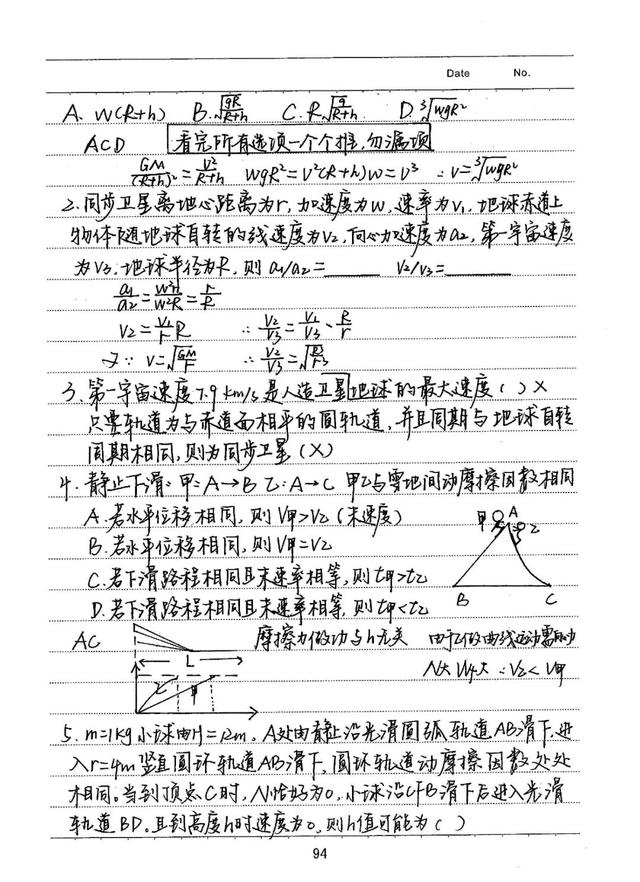 Date No.
A. W(R+h) B.√(gR/R+h) C.R√(g/R+h) D ³√WgR²
ACD 看完所有选项一个个推,勿漏项
GM/(R+h)²=V²/R+h WgR²=V²(R+h)W=V³ ∴V=³√WgR²
2.同步卫星离地心距离为r,加速度为W,速率为V₁,地球赤道上
物体随地球自转的线速度为V₂,向心加速度为a₂,第一宇宙速度
为V₃,地球半径为R,则a₁/a₂=____ V₂/V₃=____
a₁/a₂=W²r/W²R=r/R
V₂=V₁/r R ∴V₂/V₃=V₁/V₃·R/r
又∵V=√(GM/r) ∴V₂/V₃=
3.第一宇宙速度7.9km/s是人造卫星地球的最大速度( )X
只要轨道为与赤道面相平的圆轨道,并且周期与地球自转
周期相同,则为同步卫星(X)
4.静止下滑:甲:A→B 乙:A→C 甲乙与雪地间动摩擦因数相同
A.若水平位移相同,则V甲>V乙(末速度)
B.若水平位移相同,则V甲=V乙
C.若下滑路程相同且末速率相等,则t甲>t乙
D.若下滑路程相同且末速率相等,则t甲<t乙
甲 A 乙
B C
AC 摩擦力做功与h无关 由于乙做曲线运动需向力
L
N大 Wf大 ∴V乙<V甲
乙 甲
5.m=1kg小球由H=12m。A处由静止沿光滑圆弧轨道AB滑下,进
入r=4m竖直圆环轨道AB滑下,圆环轨道动摩擦因数处处
相同。当到顶点C时,N恰好为0,小球沿CFB滑下后进入光滑
轨道BD。且到高度h时速度为0,则h值可能为( )
94